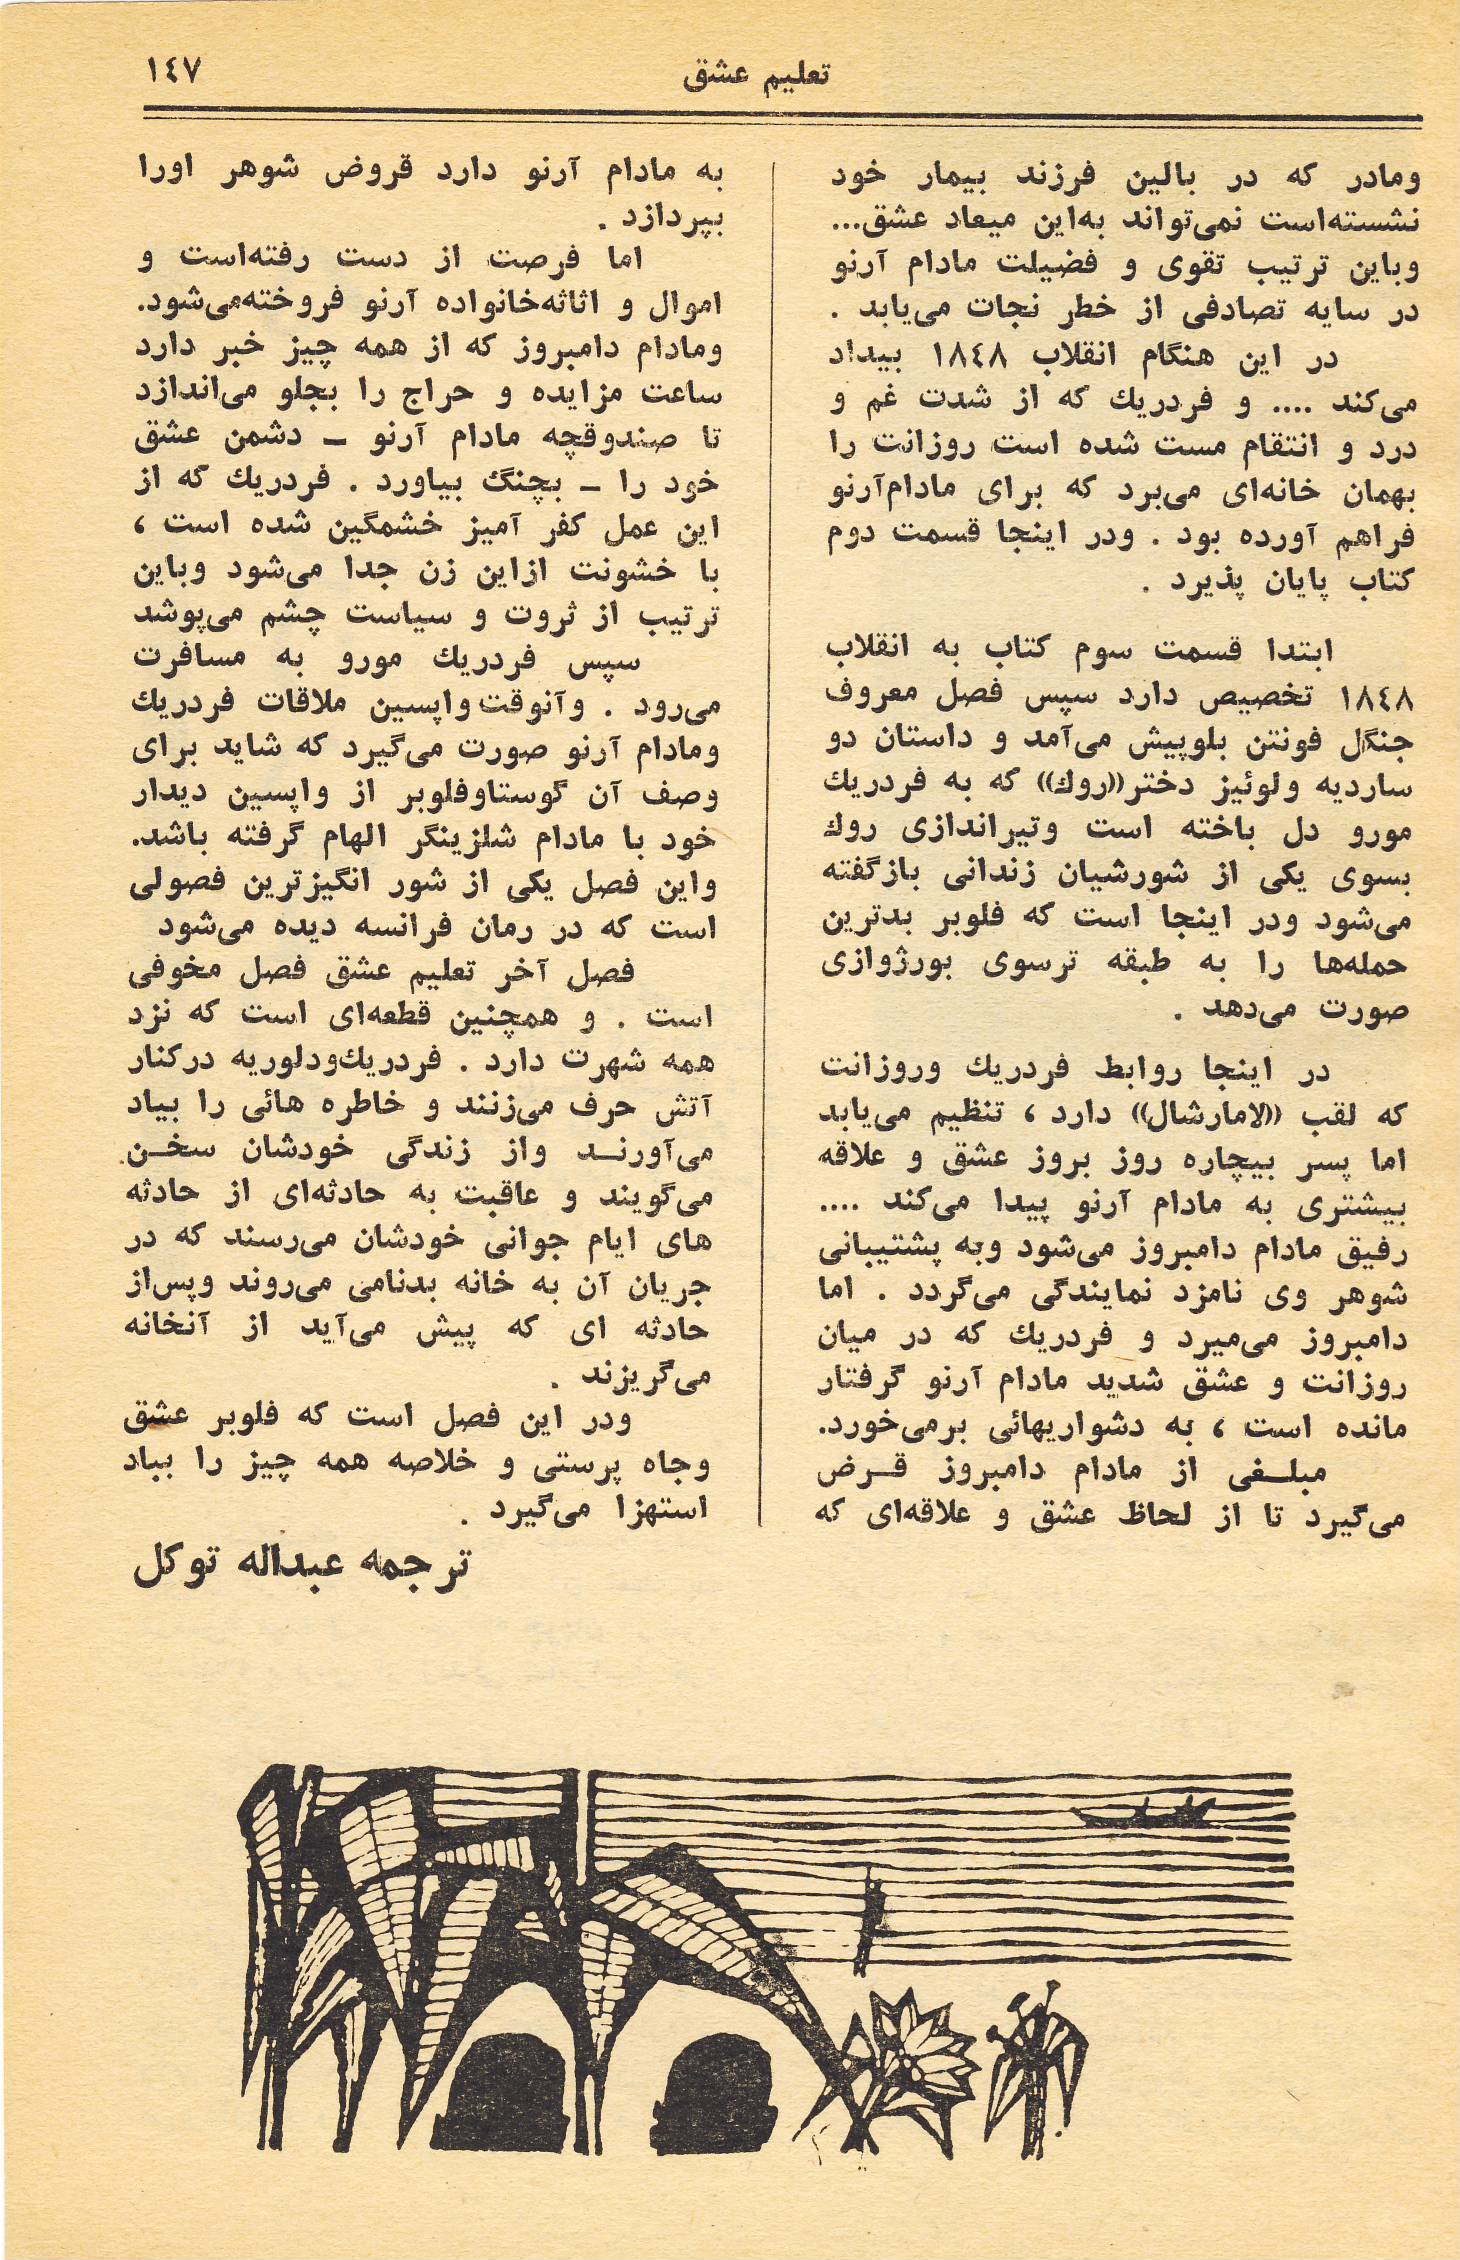 تعلیم عشق
١٤٧
ومادر که در بالین فرزند بیمار خود
نشسته‌است نمی‌تواند به‌این میعاد عشق...
وباین ترتیب تقوی و فضیلت مادام آرنو
در سایه تصادفی از خطر نجات می‌یابد .
در این هنگام انقلاب ١٨٤٨ بیداد
می‌کند .... و فردریك که از شدت غم و
درد و انتقام مست شده است روزانت را
بهمان خانه‌ای می‌برد که برای مادام‌آرنو
فراهم آورده بود . ودر اینجا قسمت دوم
کتاب پایان پذیرد .
ابتدا قسمت سوم کتاب به انقلاب
١٨٤٨ تخصیص دارد سپس فصل معروف
جنگل فونتن بلوپیش می‌آمد و داستان دو
ساردیه ولوئیز دختر((روك)) که به فردریك
مورو دل باخته است وتیراندازی روك
بسوی یکی از شورشیان زندانی بازگفته
می‌شود ودر اینجا است که فلوبر بدترین
حمله‌ها را به طبقه ترسوی بورژوازی
صورت می‌دهد .
در اینجا روابط فردریك وروزانت
که لقب ((لامارشال)) دارد ، تنظیم می‌یابد
اما پسر بیچاره روز بروز عشق و علاقه
بیشتری به مادام آرنو پیدا می‌کند ....
رفیق مادام دامبروز می‌شود وبه پشتیبانی
شوهر وی نامزد نمایندگی می‌گردد . اما
دامبروز می‌میرد و فردریك که در میان
روزانت و عشق شدید مادام آرنو گرفتار
مانده است ، به دشواریهائی برمی‌خورد.
مبلـغی از مادام دامبروز قـرض
می‌گیرد تا از لحاظ عشق و علاقه‌ای که
به مادام آرنو دارد قروض شوهر اورا
بپردازد .
اما فرصت از دست رفته‌است و
اموال و اثاثه‌خانواده آرنو فروخته‌می‌شود.
ومادام دامبروز که از همه چیز خبر دارد
ساعت مزایده و حراج را بجلو می‌اندازد
تا صندوقچه مادام آرنو ـ دشمن عشق
خود را ـ بچنگ بیاورد . فردریك که از
این عمل کفر آمیز خشمگین شده است ،
با خشونت ازاین زن جدا می‌شود وباین
ترتیب از ثروت و سیاست چشم می‌پوشد
سپس فردریك مورو به مسافرت
می‌رود . وآنوقت واپسین ملاقات فردریك
ومادام آرنو صورت می‌گیرد که شاید برای
وصف آن گوستاوفلوبر از واپسین دیدار
خود با مادام شلزینگر الهام گرفته باشد.
واین فصل یکی از شور انگیزترین فصولی
است که در رمان فرانسه دیده می‌شود
فصل آخر تعلیم عشق فصل مخوفی
است . و همچنین قطعه‌ای است که نزد
همه شهرت دارد . فردریك‌ودلوریه درکنار
آتش حرف می‌زنند و خاطره هائی را بیاد
می‌آورنـد واز زندگی خودشان سخـن
می‌گویند و عاقبت به حادثه‌ای از حادثه
های ایام جوانی خودشان می‌رسند که در
جریان آن به خانه بدنامی می‌روند وپس‌از
حادثه ای که پیش می‌آید از آنخانه
می‌گریزند .
ودر این فصل است که فلوبر عشق
وجاه پرستی و خلاصه همه چیز را بباد
استهزا می‌گیرد .
ترجمه عبداله توکل